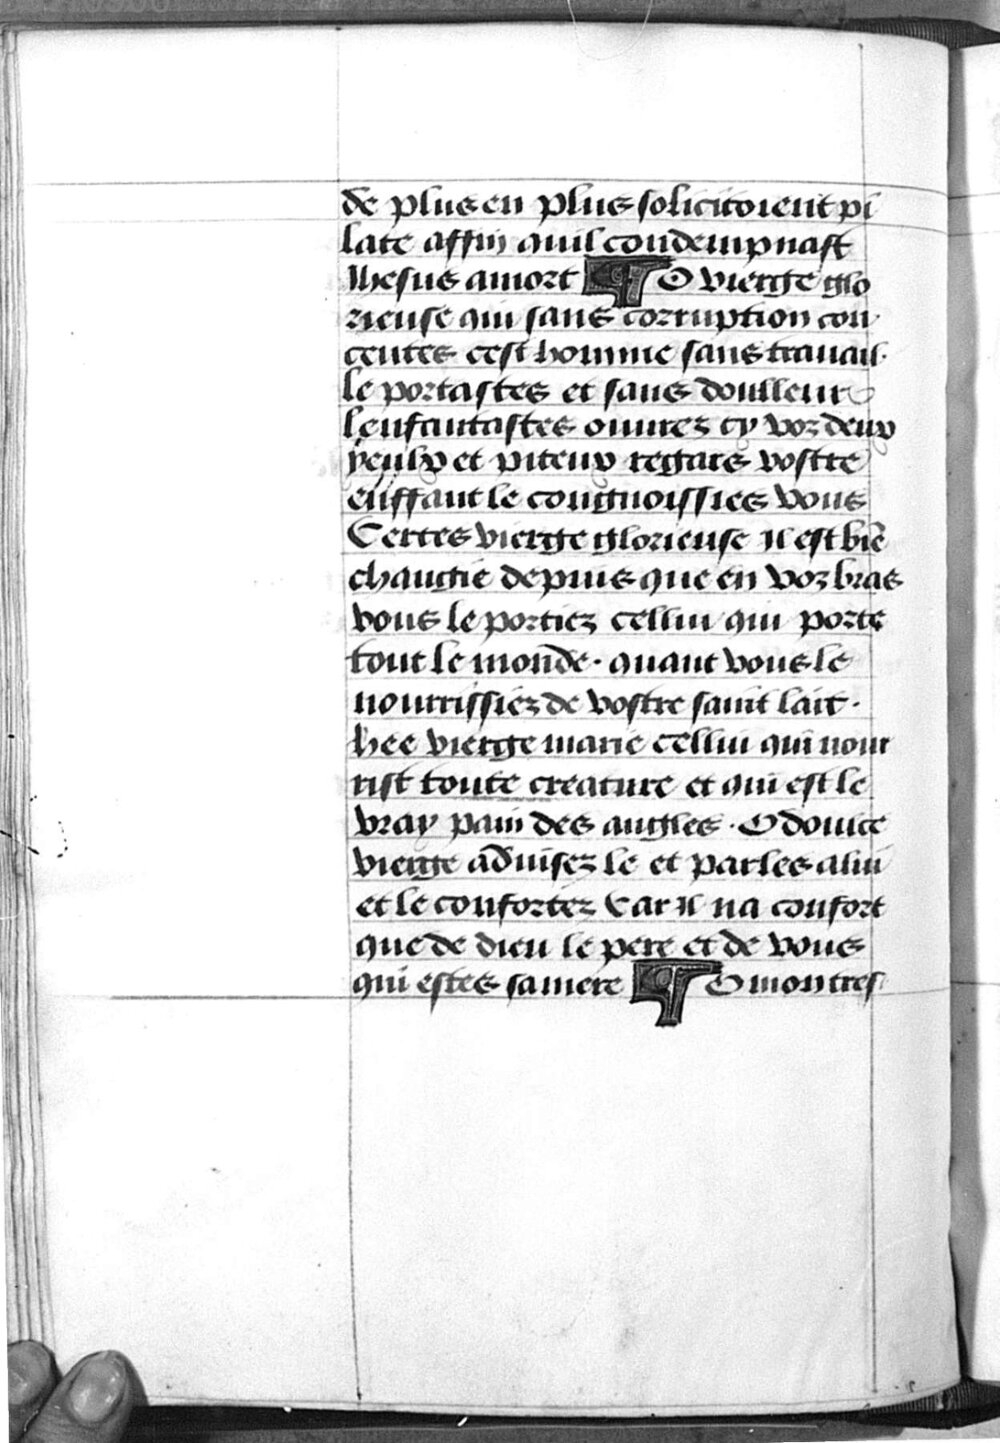 de plus en plus solicitoient pi
late affin quil condempnast
Ihesus a mort ¶ O vierge glo
rieuse qui sans corruption con
ceutes cest homme sans travail.
le portastes et sans doulleur
lenfantastes ouvrez cy voz deux
yeulx et piteux regars vostre
enffant le congnoissies vous
Certes vierge glorieuse Il est biē
changie depuis que en voz bras
vous le portiez cellui qui porte
tout le monde . quant vous le
nourrissiez de vostre saint lait .
hee vierge marie cellui qui nour
rist toute creature et qui est le
vray pain des angles . O doulce
vierge advisez le et parles a lui
et le confortez Car Il na confort
que de dieu le pere et de vous
qui estes sa mere ¶ O mon tres